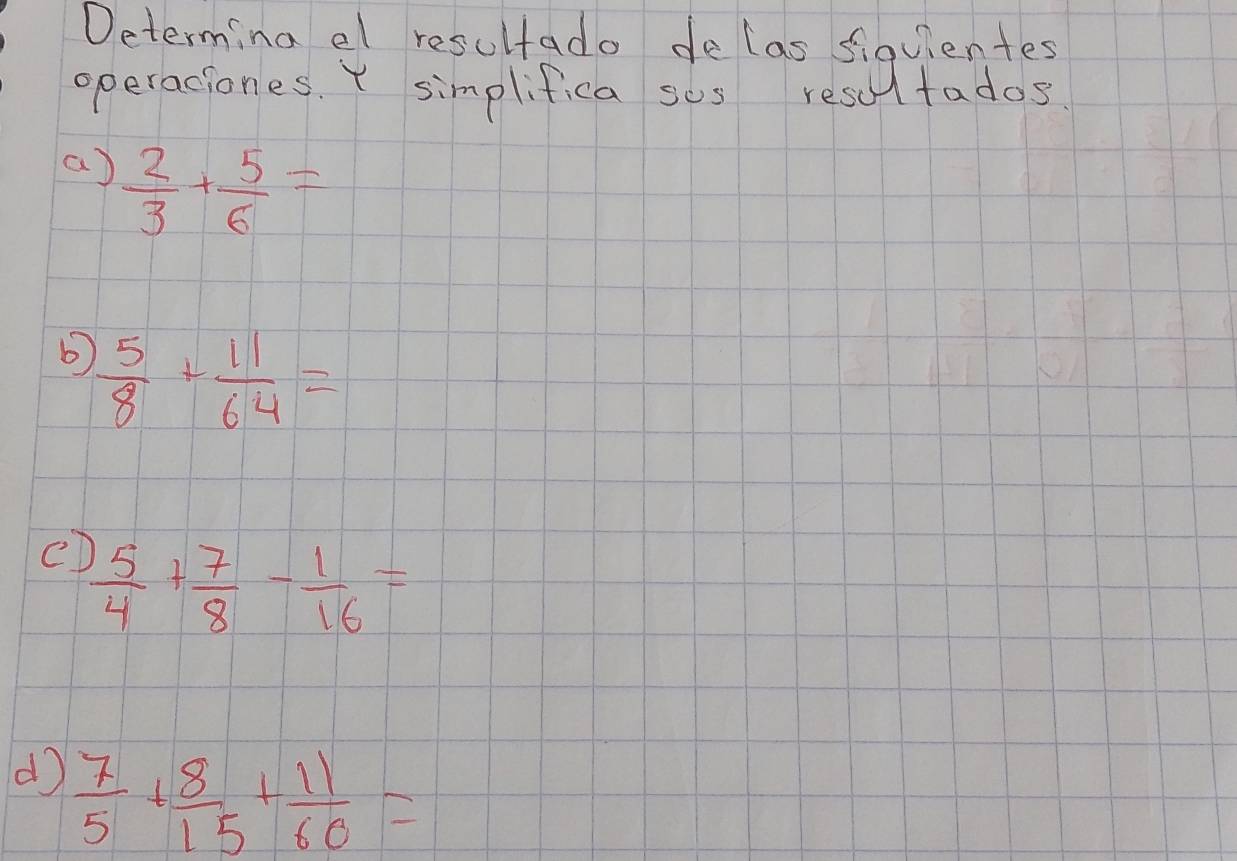 Determina el resultado de las siguientes
operaciones. Y simplifica sus resultados.
a) 2/3 + 5/6 =
b) 5/8 + 11/64 =
c) 5/4 + 7/8 - 1/16 =
d) 7/5 + 8/15 + 11/60 =